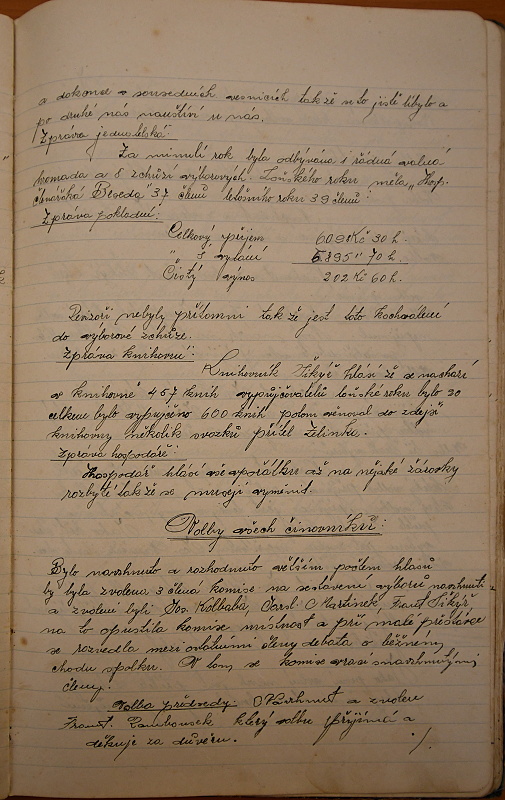 a dokonce v sousedních vesnicích takže se to jistě líbylo a
po druhé nás navštíví u nás.
Zpráva jednatelská:
Za minulí rok byla odbývána 1 řádná valná
hromada a 8 schůzí výborových. Loňského roku měla „Hosp.
čtenářská Beseda" 37 členů letošního roku 39 členů
Zpráva pokladní:
Celkový příjem 6091 Kč 30 h.
" vydání 5.895 " 70 h.
Čistý výnos 202 Kč 60 h.
Revizoři nebyly přítomni tak že jest toto kschválení
do výborové schůze.
Zpráva knihovní:
Knihovník Šikýř hlásí že se nachází
v knihovně 457 knih vypujčovatelů loňské roku bylo 30
celkem bylo vypujčeno 600 knih potom věnoval do zdejší
knihovny několik svazků přítel Zelinka.
Zpráva hospodáře:
Hospodář hlásí vše vpořádku až na nějaké žárovky
rozbyté takže se musejí vyměnit.
Volby všech činovníků:
Bylo navrhnuto a rozhodnuto větším počtem hlasů
by byla zvolena 3 členná komise na sestavení výborů navrhnuti
a zvoleni byli Jos. Kolbaba, Jarsl. Martinek, Frant Šikýř
na to opustila komise místnost a při malé přestávce
se rozvedla mezi ostatními členy debata o běžném
chodu spolku. V tom se komise vrací snavrhnutými
členy.
Volba předsedy: Navrhnut a zvolen
Frant. Zambousek který volbu přijímá a
děkuje za důvěru. ./.